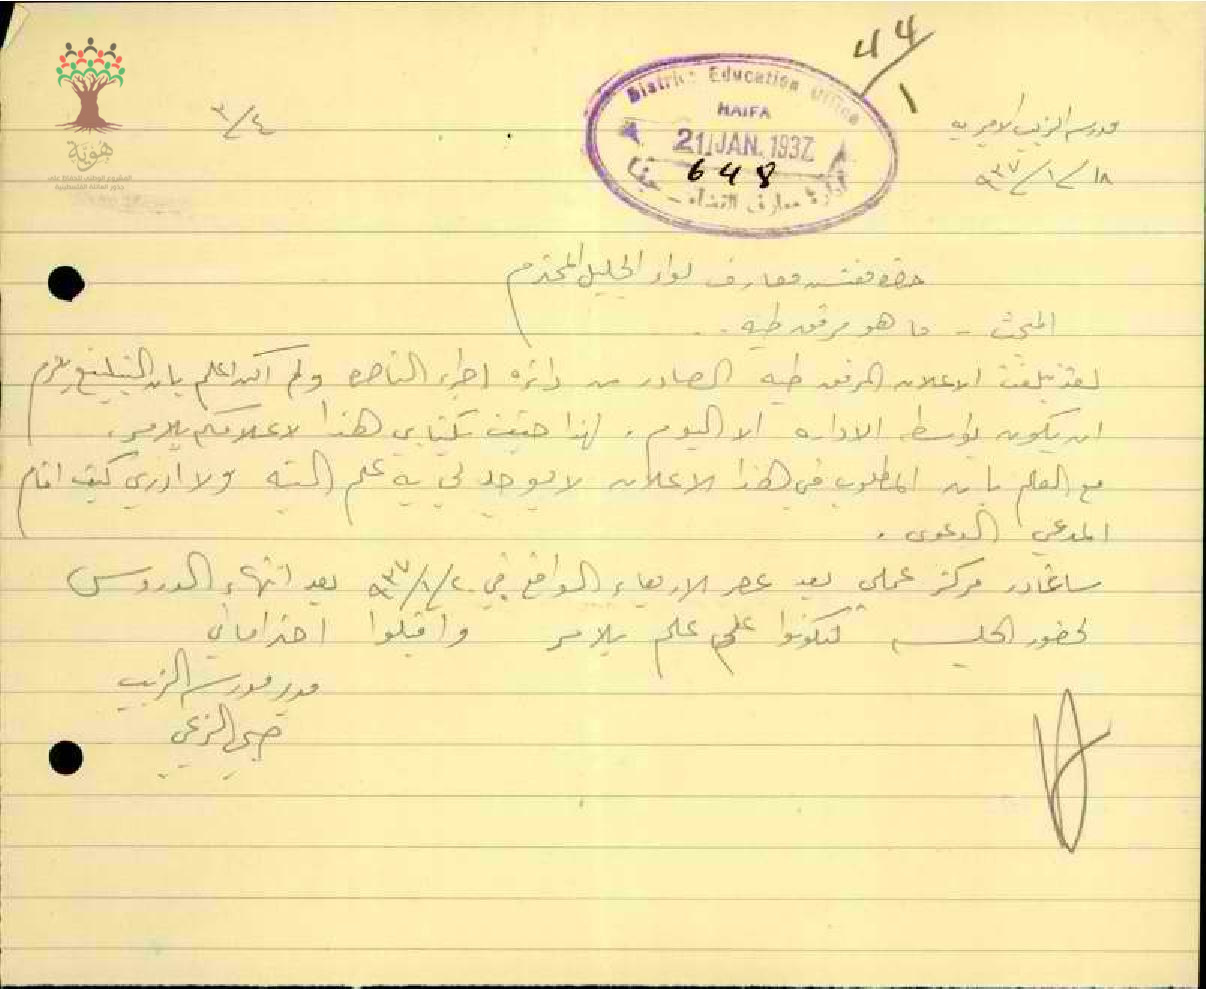 44/1
District Education Office
HAIFA
21 JAN. 1937
648
ادارة معارف القضاء - حيفا
مدرسة الزيب الاميرية
١٨/١/٩٣٧
٣/٤
هوية
المشروع الوطني للحفاظ على
جذور العائلة الفلسطينية
حضرة مفتش معارف لواء الجليل المحترم
المبحث - ما هو مرفق طيه
لقد تبلغت الاعلان المرفق طيه الصادر من دائرة اجراء الناصره ولم اكن اعلم بان التبليغ يلزم
ان يكون بواسطة الاداره الا اليوم. لهذا جئت بكتابي هذا لاعلامكم بالامر.
مع العلم بان المطلوب في هذا الاعلان لا يوجد لي به علم البته ولا ادري كيف اقام
المدعي الدعوى.
ساغادر مركز عملي بعد عصر الاربعاء الواقع في ٢٠/١/٩٣٧ بعد انتهاء الدروس
لحضور الجلسه لتكونوا على علم بالامر واقبلوا احتراماتي
مدير مدرسة الزيب
صبحي الزعبي